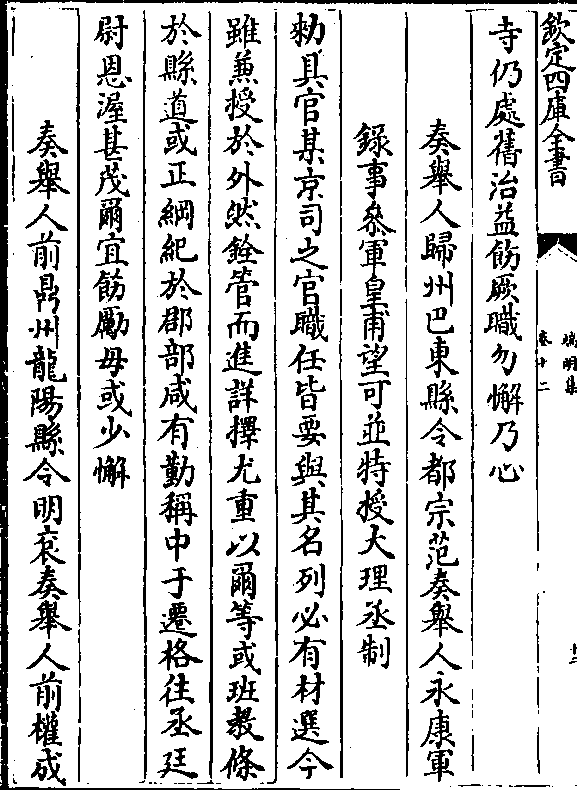 欽定四庫全書
端明集
卷十二
十二
寺仍處舊治益飭厥職勿懈乃心
奏舉人歸州巴東縣令都宗范奏舉人永康軍
錄事叅軍皇甫望可並特授大理丞制
勑具官某京司之官職任皆要與其名列必有材選今
雖兼授於外然銓管而進詳擇尤重以爾等或班教條
於縣道或正綱紀於郡部咸有勤稱中于遷格往丞廷
尉恩渥甚茂爾宜飭勵毋或少懈
奏舉人前鼎州龍陽縣令明衮奏舉人前權成